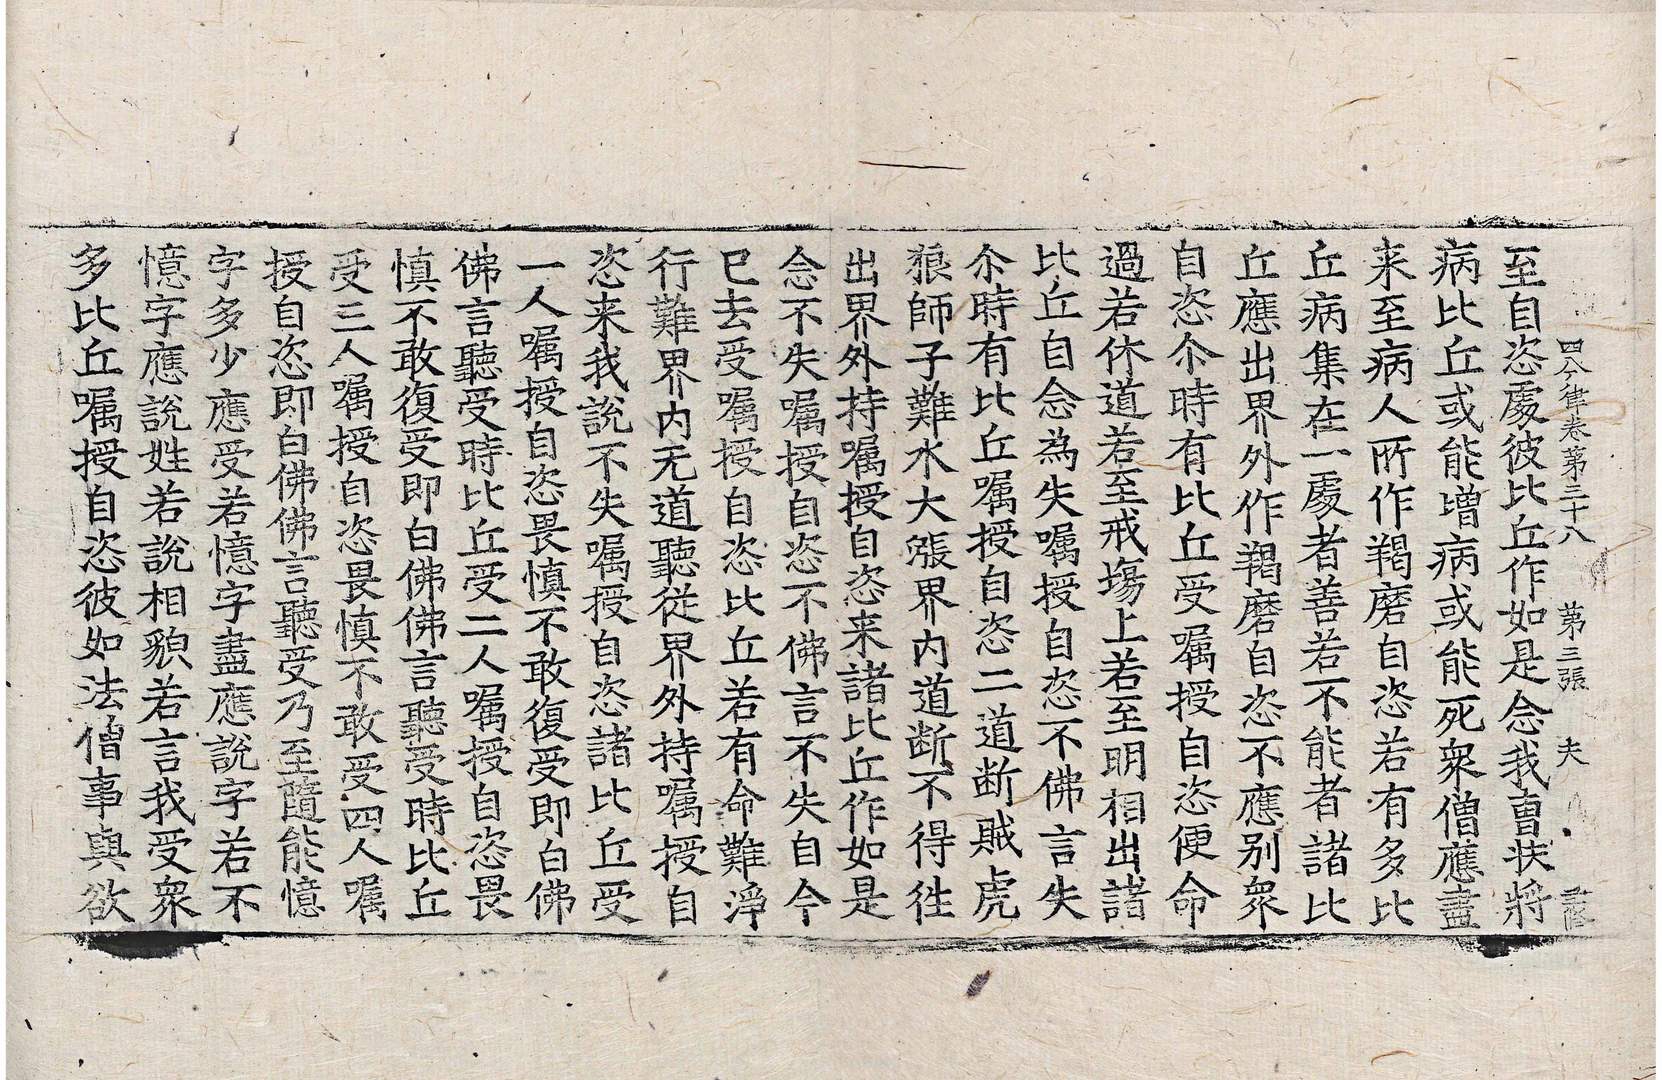 四分律卷第三十八 第三張 夫
至自恣處彼比丘作如是念我曹扶將
病比丘或能增病或能死衆僧應盡
来至病人所作羯磨自恣若有多比
丘病集在一處者善若不能者諸比
丘應出界外作羯磨自恣不應别衆
自恣尒時有比丘受囑授自恣便命
過若休道若至戒塲上若至明相出諸
比丘自念為失囑授自恣不佛言失
尒時有比丘囑授自恣二道断賊虎
狼師子難水大漲界内道断不得徃
出界外持囑授自恣来諸比丘作如是
念不失囑授自恣不佛言不失自今
已去受囑授自恣比丘若有命難淨
行難界内无道聽從界外持囑授自
恣来我說不失囑授自恣諸比丘受
一人囑授自恣畏慎不敢復受即白佛
佛言聽受時比丘受二人囑授自恣畏
慎不敢復受即白佛佛言聽受時比丘
受三人囑授自恣畏慎不敢受四人囑
授自恣即白佛佛言聽受乃至隨能憶
字多少應受若憶字盡應說字若不
憶字應說姓若說相貌若言我受衆
多比丘囑授自恣彼如法僧事與欲